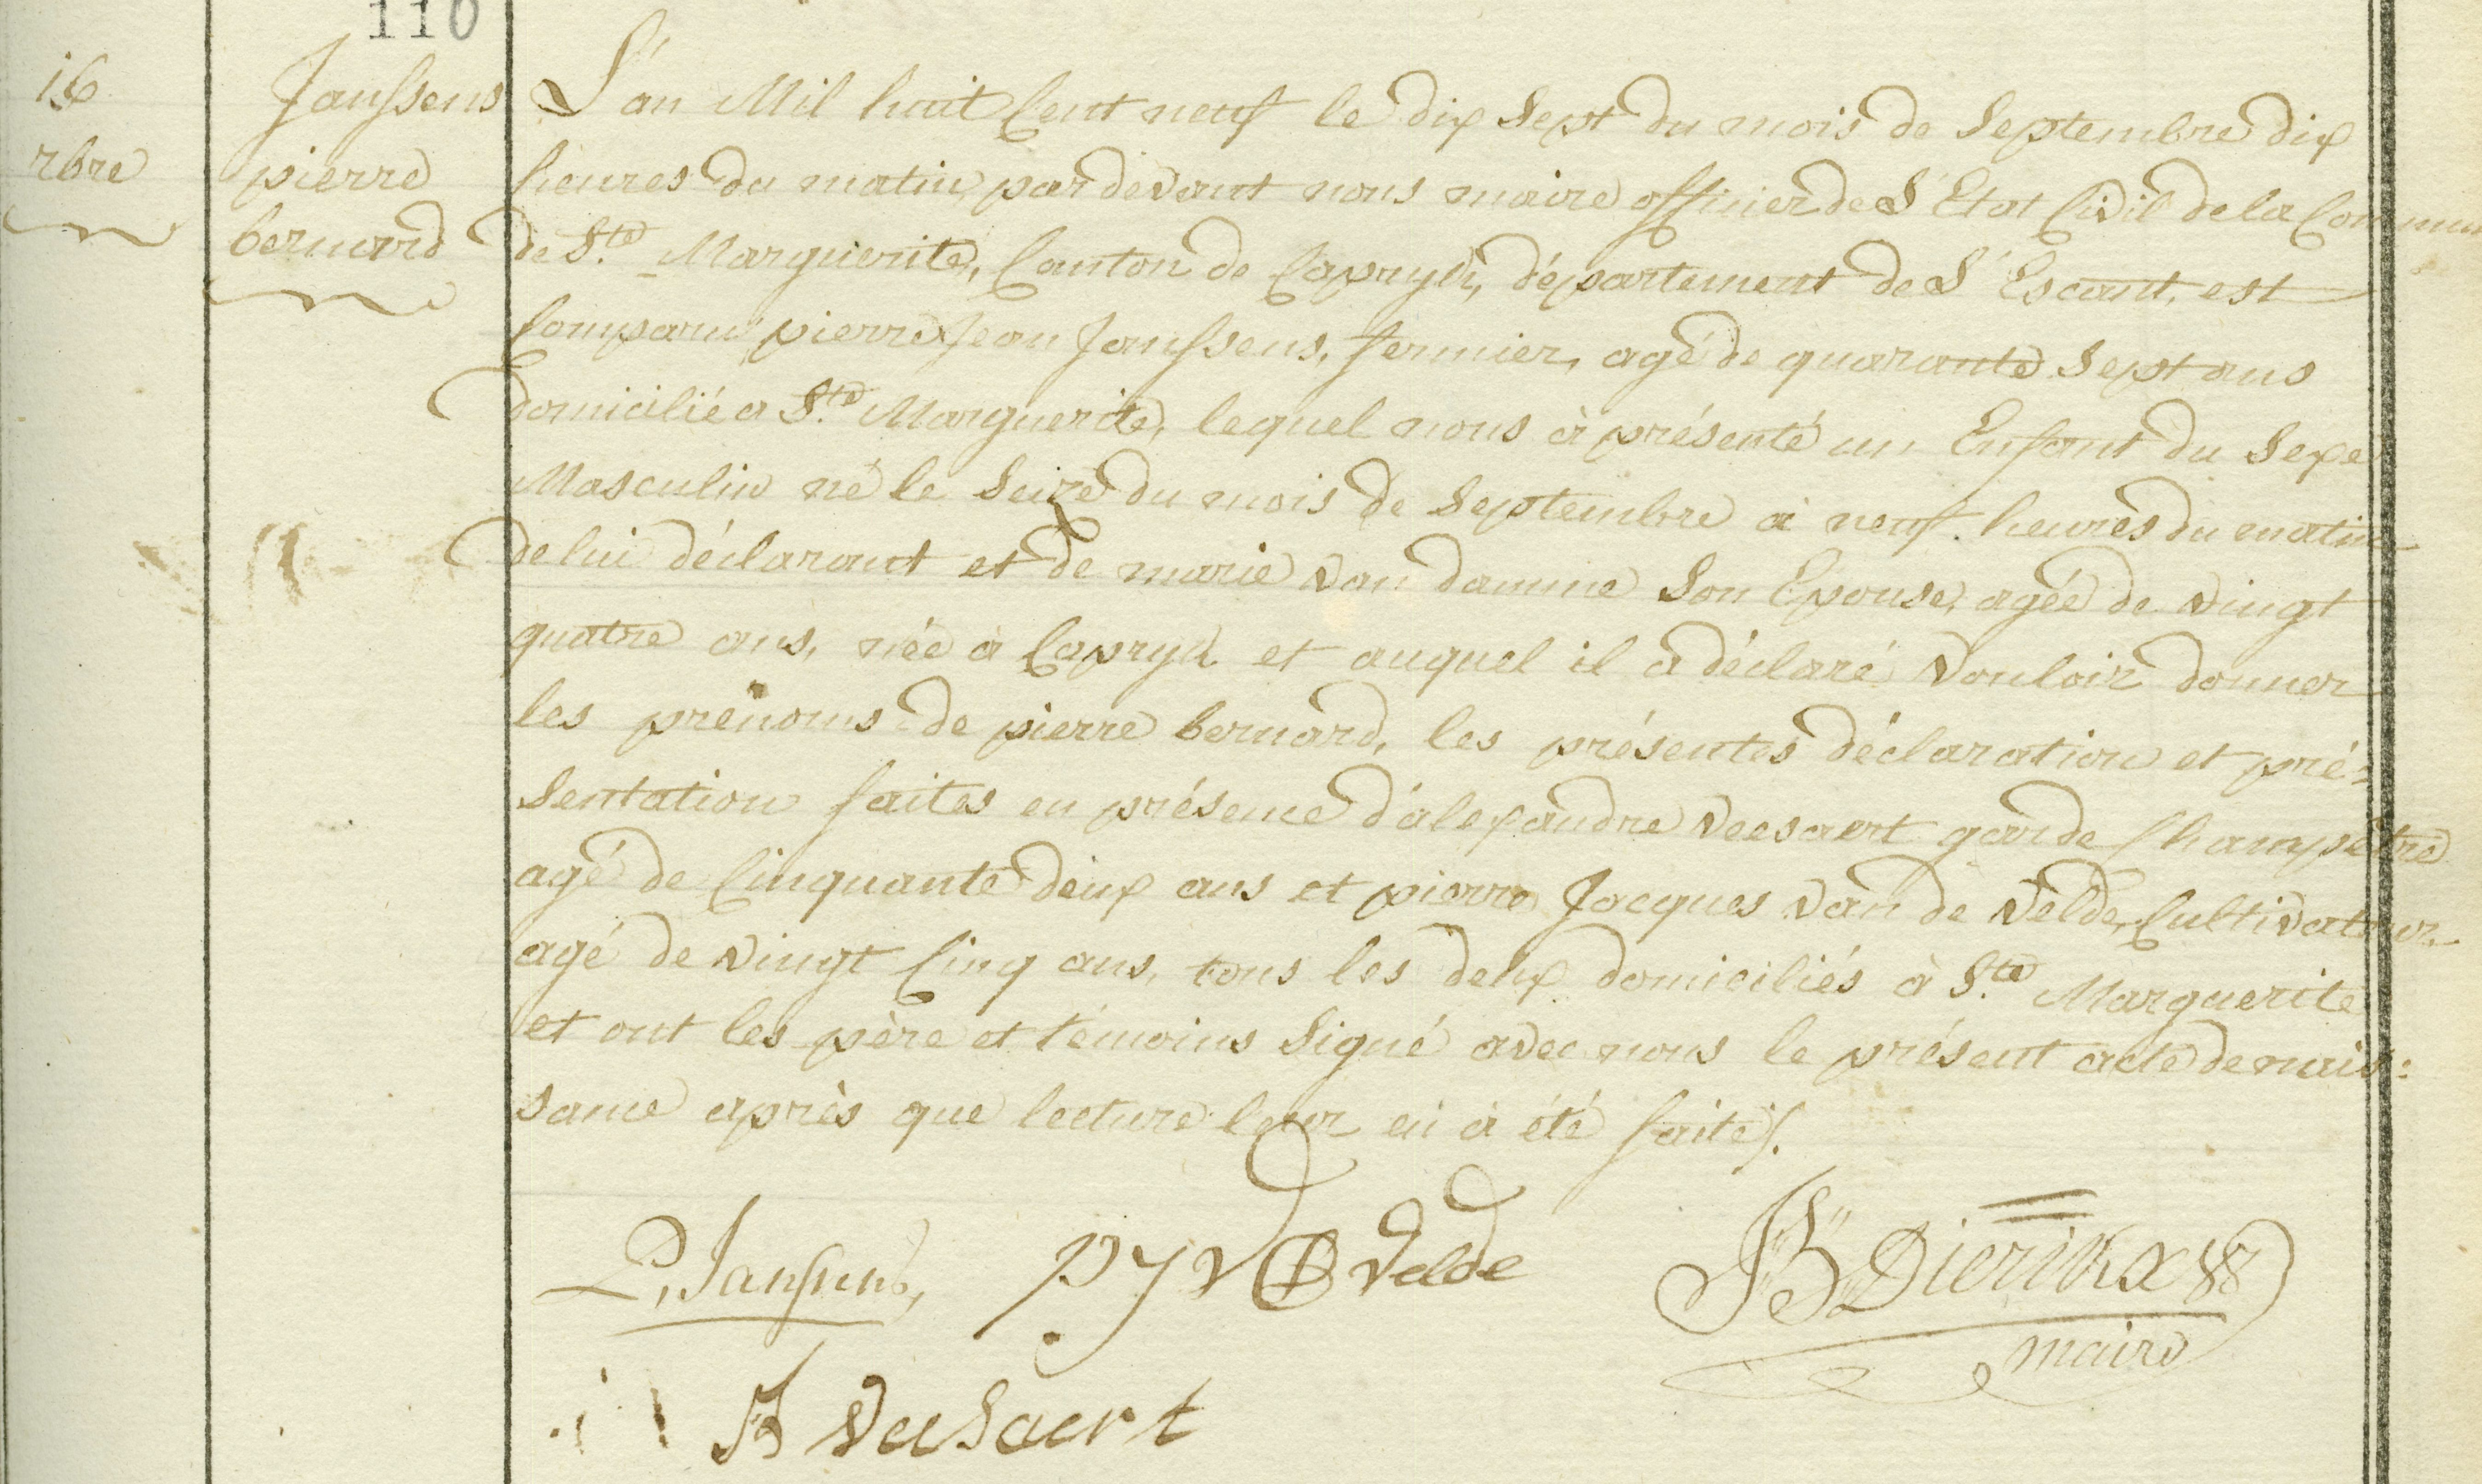 110
16
rbre
Janssens
pierre
bernard
L'an Mil huit Cent neuf le dix Sept du mois de Septembre dix
heures du matin, par devant nous maire officier de L'Etat Civil de la Commun
de Ste Marguerite, Canton de Capryk, département de L'Escaut, est
Comparu pierre Jean Janssens, fermier, agé de quarante Sept ans
domicilié a Ste Marguerite, lequel nous à présenté un Enfant du Sexe
Masculin né le Seize du mois de Septembre à neuf heures du matin
de lui déclarant et de marie van damme Son Epouse, agée de vingt
quatre ans, née à Capryk et auquel il a déclaré vouloir donner
les prénoms de pierre bernard, les présentes déclaration et pré=
sentation faites en présence d'alexandre veesaert garde Champêtre
agé de Cinquante deux ans et pierre Jacques van de velde, Cultivateur
agé de vingt Cinq ans, tous les deux domiciliés à Ste Marguerite
et ont les père et témoins Signé avec nous le présent acte de nais=
sance après que lecture leur en à été faite/.
P. Janssens,
p J V D Velde
JB Dierikx
maire
A veesaert